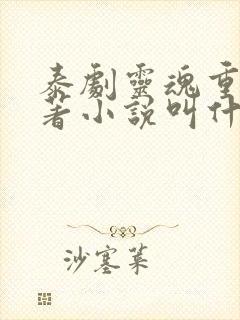 泰劇靈魂重
著小說叫什
沙塞菜